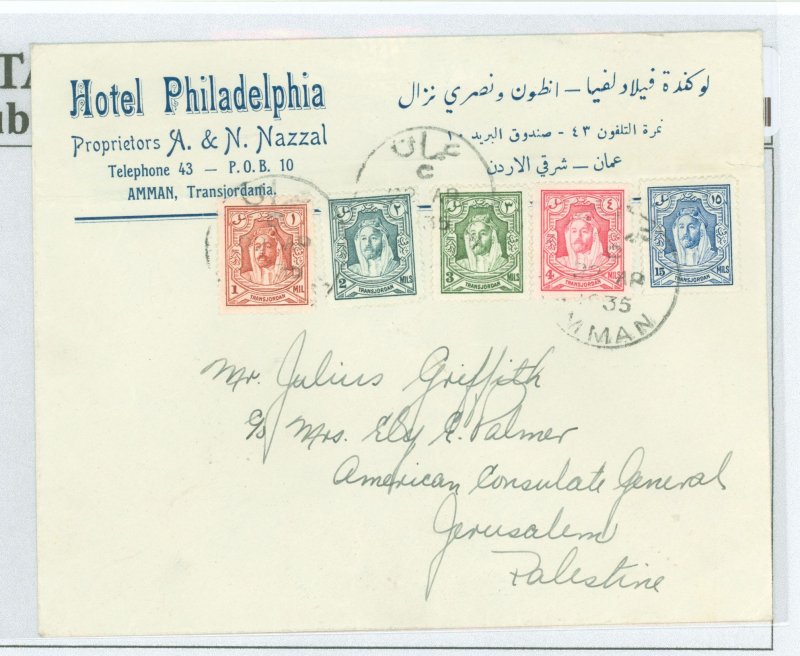 Hotel Philadelphia
Proprietors A. & N. Nazzal
Telephone 43 — P.O.B. 10
AMMAN, Transjordania.
لوكندة فيلادلفيا — انطون ونصري نزال
نمرة التلفون ٤٣ - صندوق البريد ١٠
عمان — شرقي الاردن
عمان
C
AP
35
١
1 MIL
TRANSJORDAN
٢
2 MILS
TRANSJORDAN
٣
3 MILS
TRANSJORDAN
٤
4 MILS
TRANSJORDAN
١٥
15 MILS
TRANSJORDAN
AP
35
AMMAN
Mr. Julius Griffith
c/o Mrs. Ely E. Palmer
American Consulate General
Jerusalem
Palestine